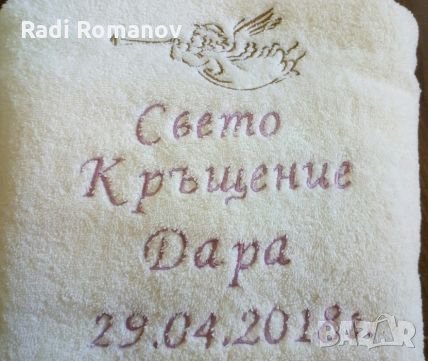 Radi Romanov
Свето
Кръщение
Дара
29.04.2018г.
BAZAR